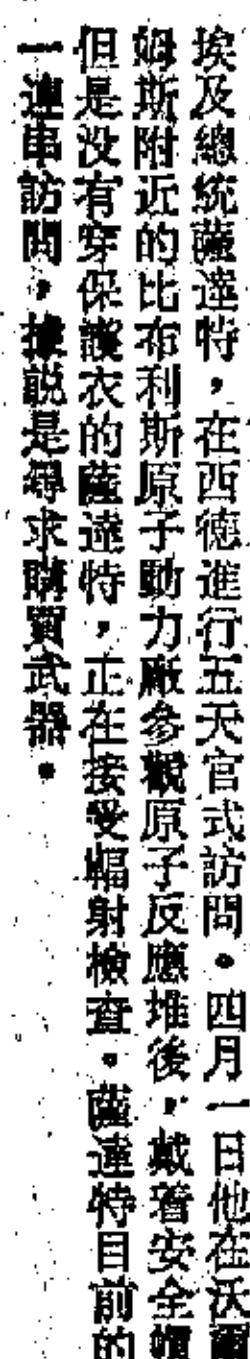 埃及總統薩達特，在西德進行五天官式訪問。四月一日他在沃爾
姆斯附近的比布利斯原子動力廠參觀原子反應堆後，戴着安全帽
但是没有穿保護衣的薩達特，正在接受輻射檢查。薩達特目前的
一連串訪問，據説是尋求購買武器。